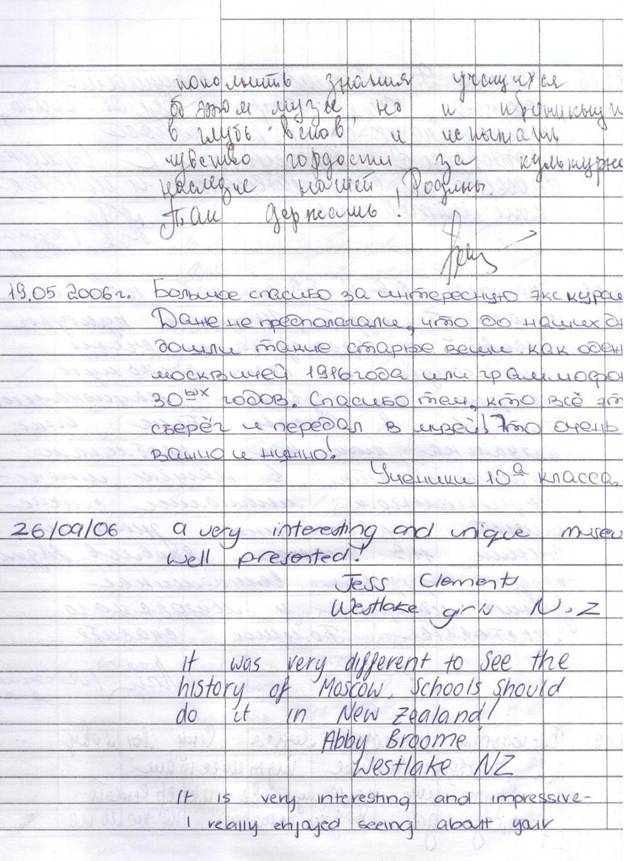 пополнить знания учащихся
в этом музее, но и проникнуть
в глубь веков и испытать
чувство гордости за культурное
наследие нашей Родины.
Так держать!
19.05 2006г. Большое спасибо за интересную экскурси
Даже не предполагали, что до наших д
дошли такие старые вещи как оде
москвичей 1916 года или граммофо
30ых годов. Спасибо тем, кто всё эт
сберёг и передал в музей! Это очень
важно и нужно!
Ученики 10а класса.
26/09/06 a very interesting and unique museu
well presented!
Jess Clements
Westlake girls N.Z
it was very different to see the
history of Moscow, Schools should
do it in New Zealand!
Abby Broome
Westlake NZ
It is very interesting and impressive-
I really enjoyed seeing about your